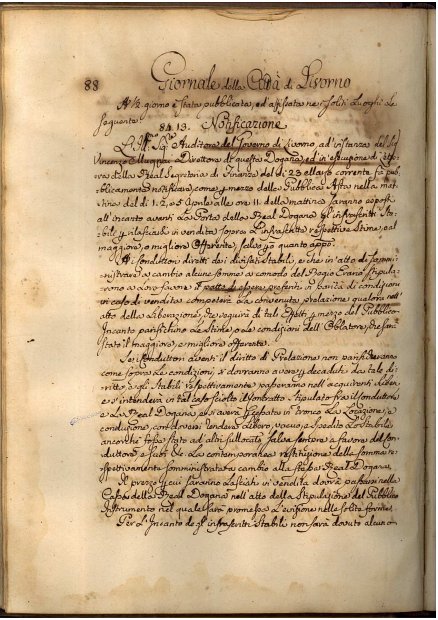 88 Giornale della Città di Livorno
A ½ giorno è stata pubblicata, ed affissata ne' soliti Luoghi La
seguente.
Notificazione
L'Ill. Sig. Auditore del Governo di Livorno, ad instanza del Sig.
Vincenzo Direttore di questa Dogana, ed in esecuzione di
della Real Segreteria di Finanze del dì 23 corrente fa pub
blicamente notificare, come p mezzo della Pubblica Asta nella mat
tina del dì 1. 2, e 5 Aprile alle ore 11. della mattina saranno esposti
all'incanto avanti La Porta della Real Dogana gl'infrascritti Sta
bili p rilasciarsi in vendita sopra L'infrascritte respettive Stime, al
maggiore, o migliore Offerente, salvo quanto appo.
Ai Conduttori diretti dei divisati Stabili, e che in atto di sommi
nistrare a cambio alcune somme a comodo del Regio Erario stipula
rono a Loro favore il patto di essere preferiti in parità di condizioni
in caso di vendita competerà la convenuta prelazione qualora nell'
atto della Liberazione, che seguirà di tali Effetti p mezzo del Pubblico
Incanto parifichino La Stima, e Le condizioni dell'Oblatore, che sarà
stato il maggiore, e migliore Offerente.
Se i Conduttori aventi il diritto di Prelazione non parificheranno
come sopra Le condizioni, s'dovranno avere p decaduti da tale di
ritto, e gli Stabili respettivamente passeranno nell'acquirenti Liberi,
e s'intenderà in tal caso sciolto il Contratto stipulato fra il Condutto
re e La Real Dogana, e si avrà p cessata in tronco La Locazione, e
conduzione, con dovere rendere Libero, vacuo, e spedito Lo Stabile,
ancorchè fosse stato ad altri sullocato, salva sempre a favore del Con
duttore, e suoi La contemporanea restituzione delle somme re
spettivamente somministrate a cambio alla stessa Real Dogana.
Il prezzo p cui saranno Lasciati in vendita dovrà passarsi nella
Cassa della Real Dogana nell'atto della Stipulazione del Pubblico
Instrumento nel quale sarà promessa L'evizione nelle solite forme.
Per L'Incanto de gl'infrascritti Stabili non sarà dovuto alcun